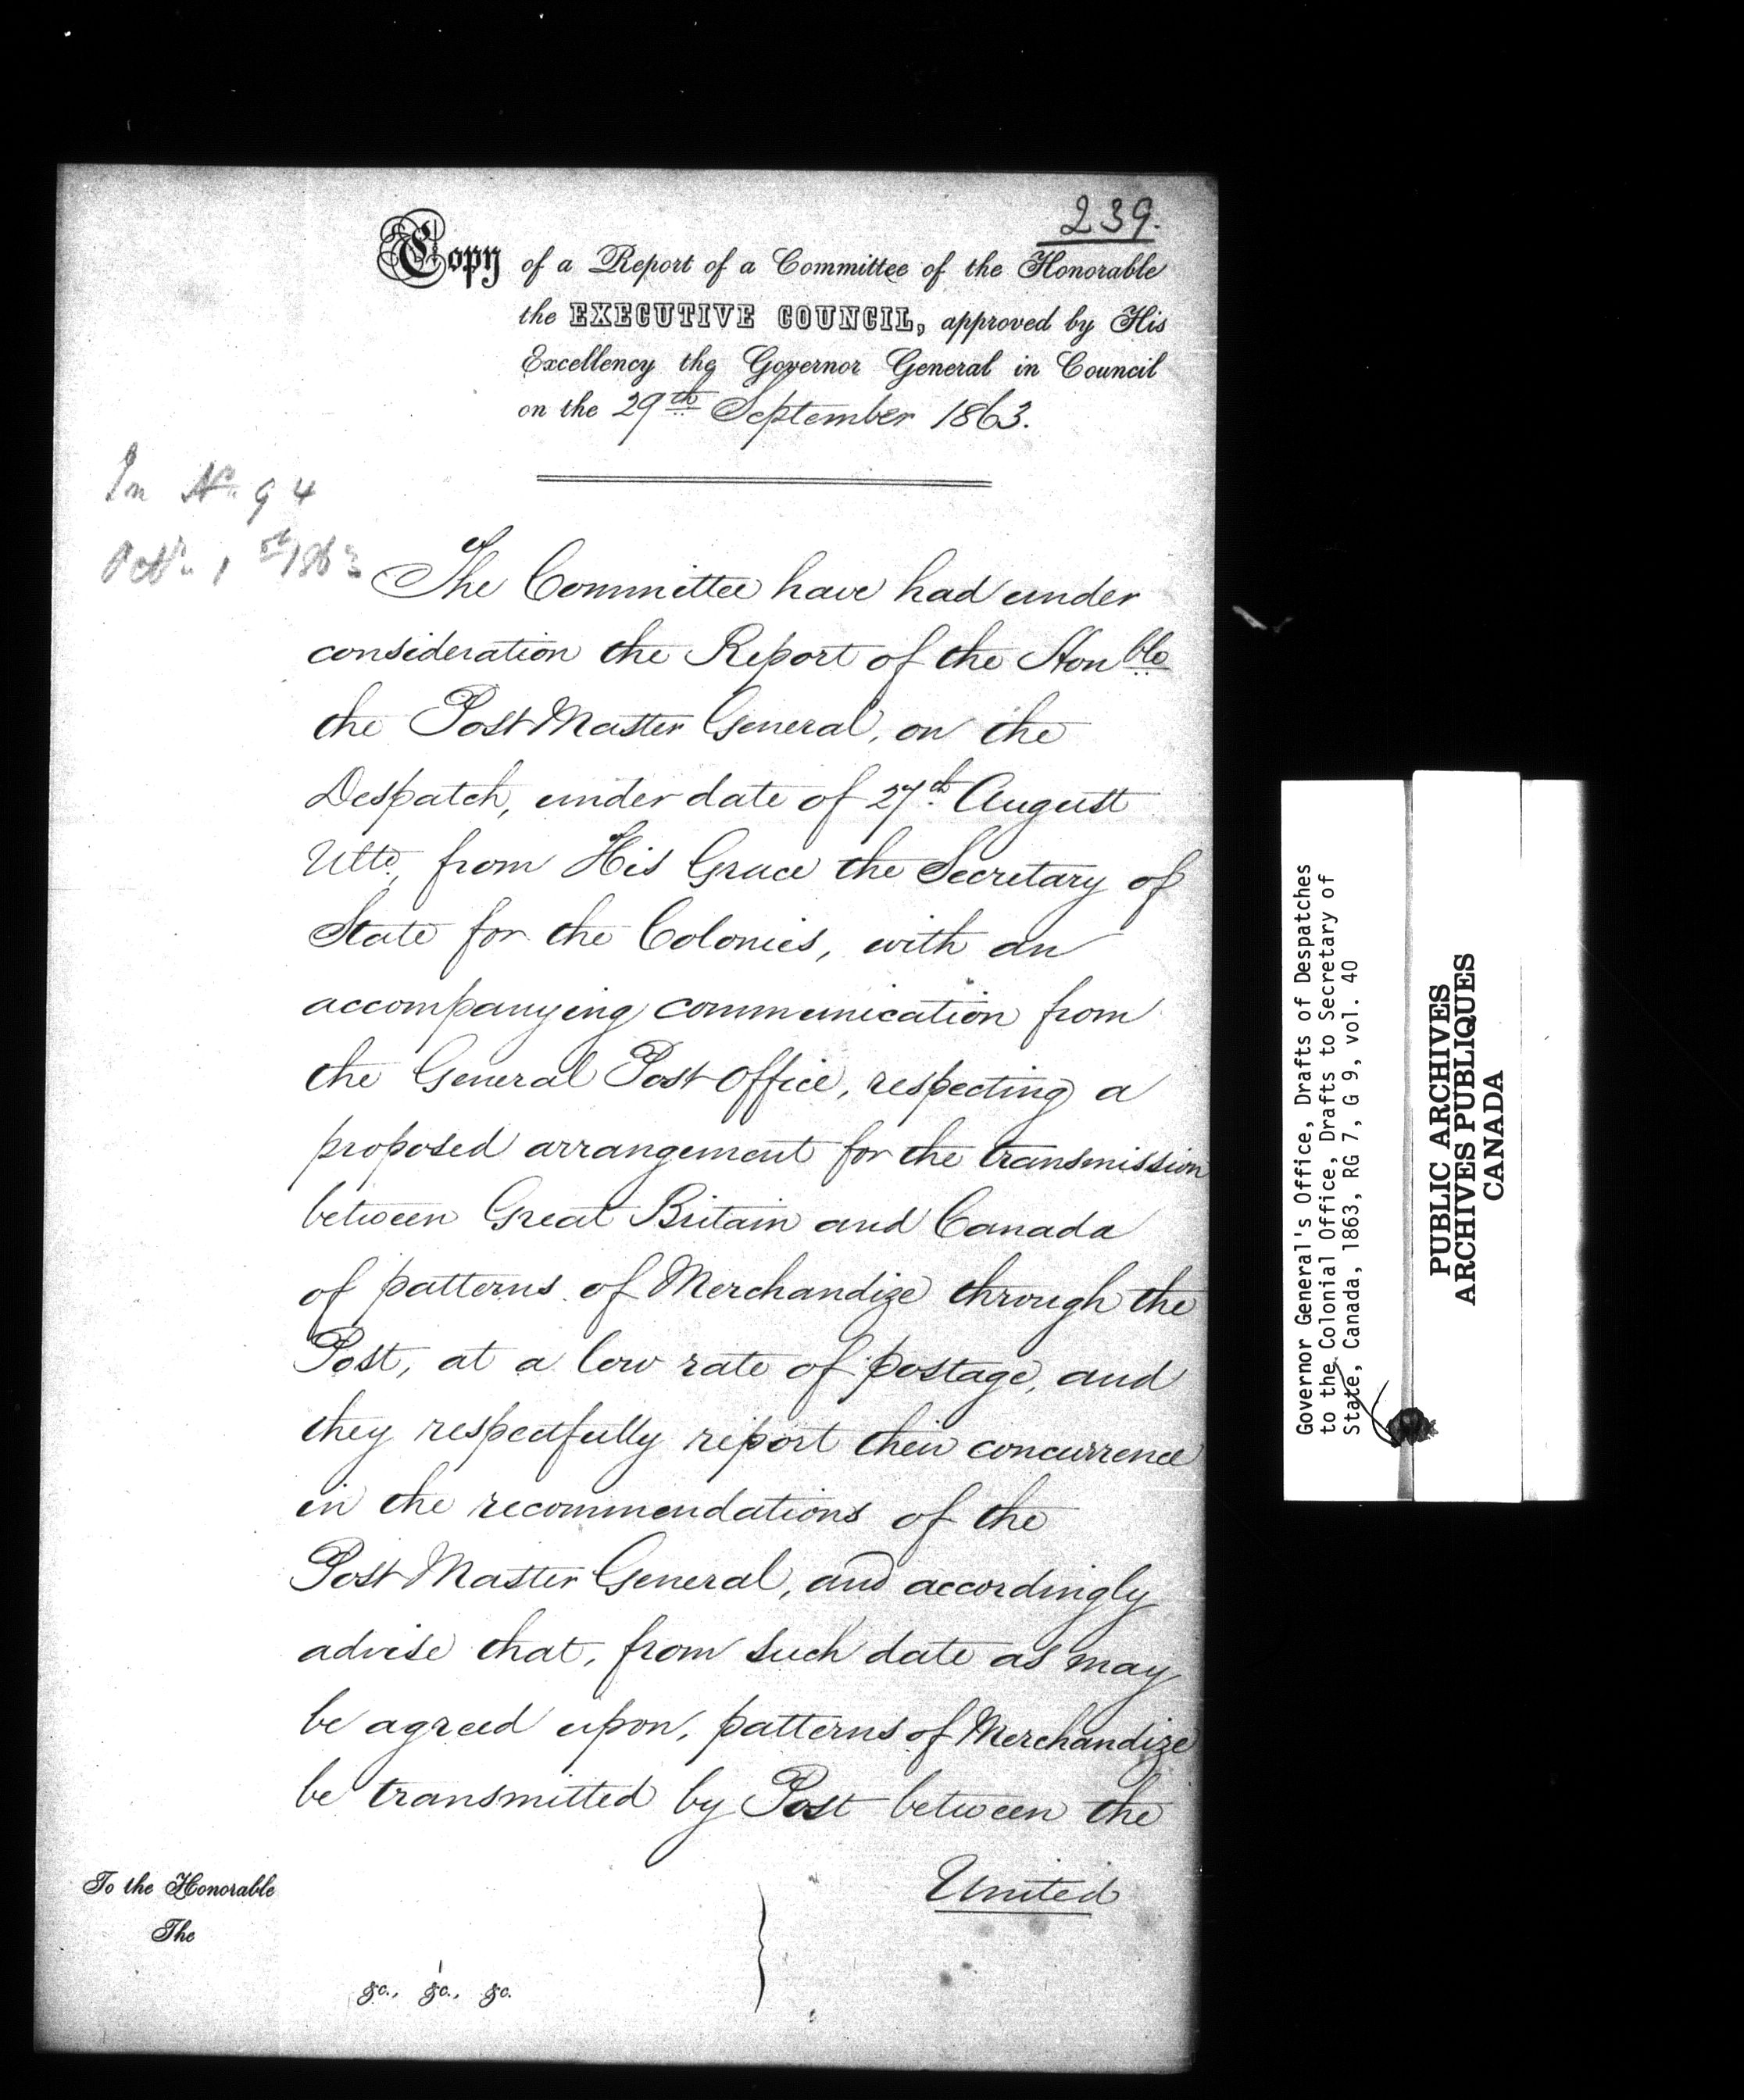 239.
Copy of a Report of a Committee of the Honorable
the EXECUTIVE COUNCIL, approved by His
Excellency the Governor General in Council
on the 29th September 1863.
In No. 94
Octr. 1st 1863
The Committee have had under
consideration the Report of the Honble
the Post Master General, on the
Despatch, under date of 27th August
Ulto, from His Grace the Secretary of
State for the Colonies, with an
accompanying communication from
the General Post Office, respecting a
proposed arrangement for the transmission
between Great Britain and Canada
of patterns of Merchandize through the
Post, at a low rate of postage, and
they respectfully report their concurrence
in the recommendations of the
Post Master General, and accordingly
advise that, from such date as may
be agreed upon, patterns of Merchandize
be transmitted by Post between the
United
To the Honorable
The
&c., &c., &c.
Governor General's Office, Drafts of Despatches
to the Colonial Office, Drafts to Secretary of
State, Canada, 1863, RG 7, G 9, vol. 40
PUBLIC ARCHIVES
ARCHIVES PUBLIQUES
CANADA